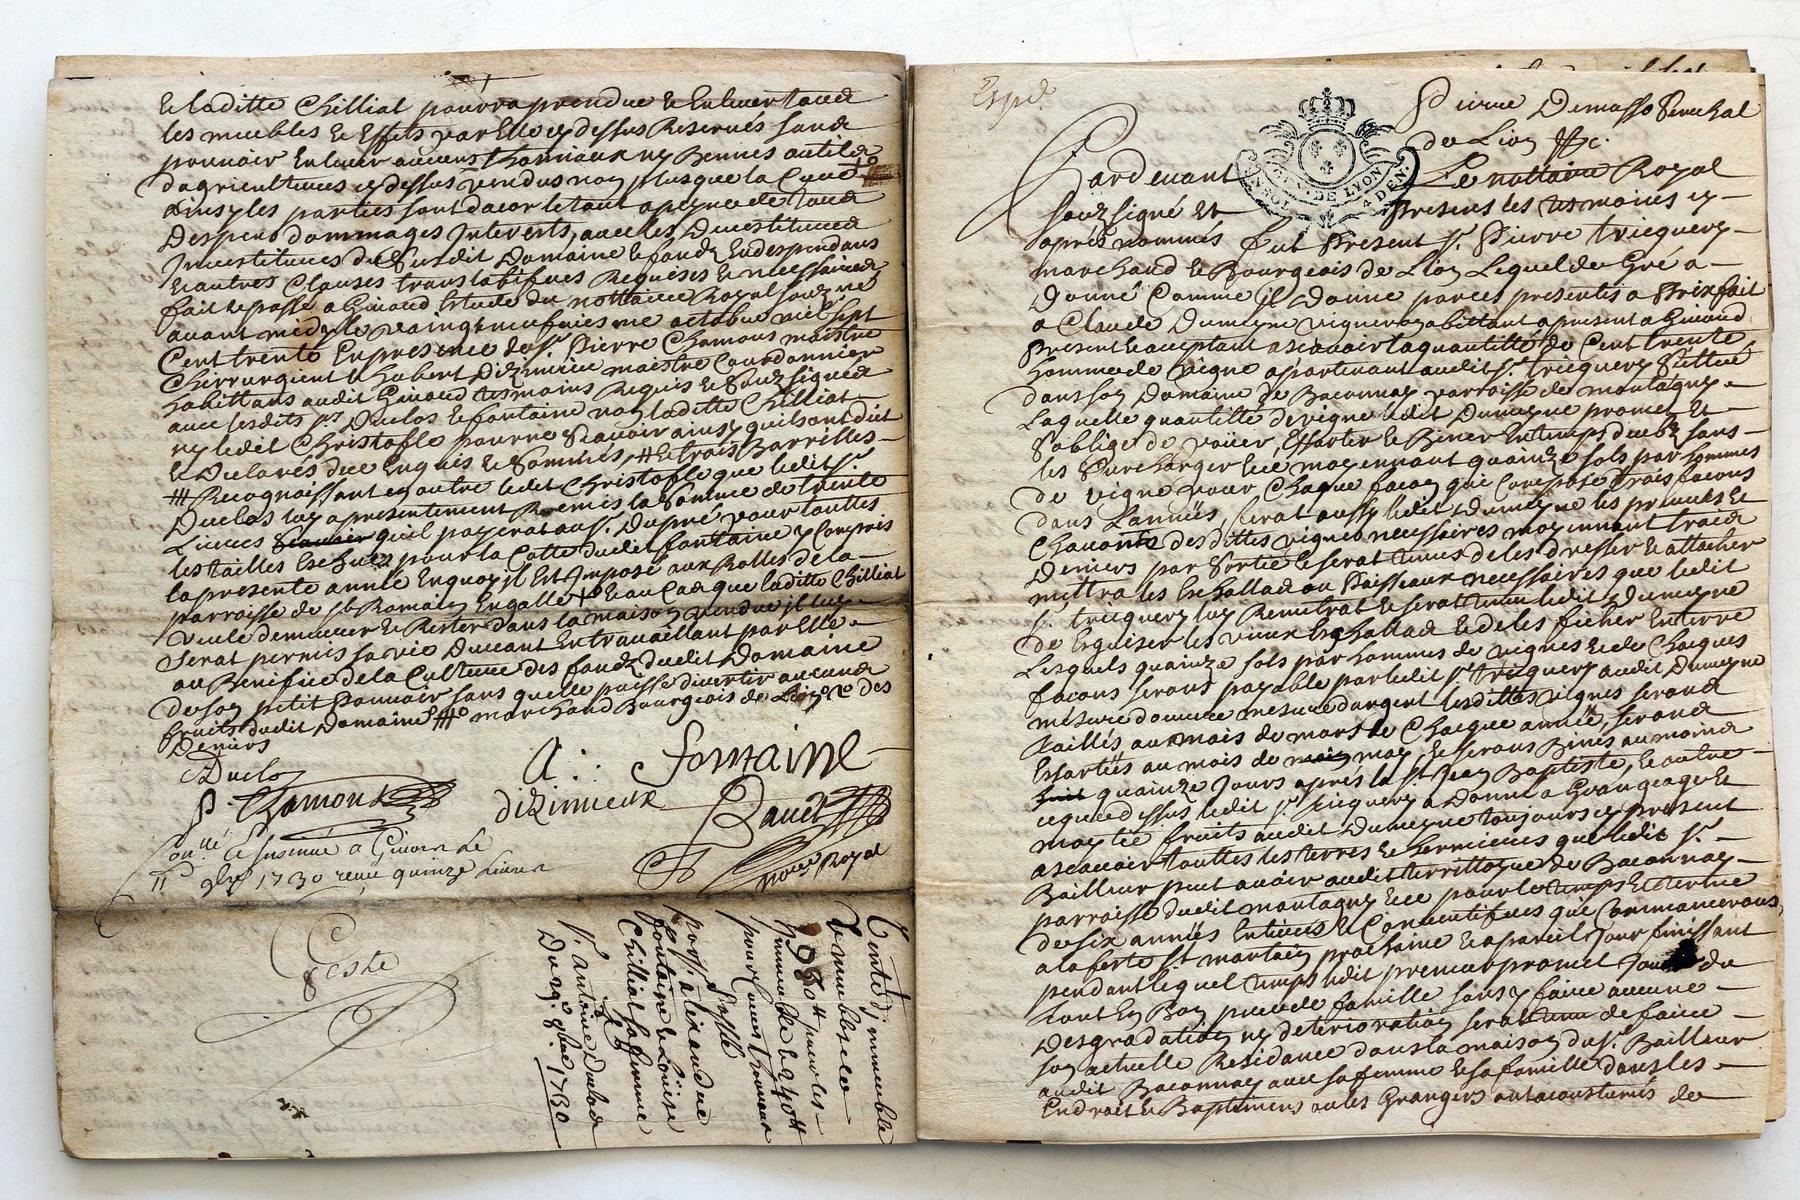 et laditte Chilliat pourra prendre et Enlever tous
les meubles et Effets par Elle cy dessus Reservés sans
pouvoir Enlever aucuns Thonniaux ny Bennes outils
dagricultures cy dessus vendus non plus que la Cuve
ainsy les parties sont dacor le tout a peyne de tous
Despens dommages Interests, avec les Devestitures
Investitures du susdit Domaine et fondz En despendans
et autres Clauses translatifves Requises et necessaires
fait et passé a Givord Estude du nottaire Royal souz ne
avant midy le vaingtneufviesme octobre mil sept
Cent trente En presence de sr. Pierre Chamous maistre
Chirrurgient et hubert Dizimieu maistre Courdonnier
habittans audit Givord tesmoins Requis et Souz signés
avec lesdits srs Duclos et fontaine non laditte Chilliat
ny ledit Christofle pour ne Scavoir ainsy quils ont dit
et Declarés de ce Enquis et Sommés, # et trois Barrilles
# Recognoissant en outre ledit Christofle que ledit sr.
Duclos luy a presentement Remis la Somme de trente
Livres quil payerat au sr. Dupré pour touttes
les tailles Escheues pour la Cotte dudit fontaine y Compris
la presente année En quoy il Est Imposé aux Rolles de la
parroisse de st. Romain En galle et au Cas que laditte Chilliat
veule demeurer et Rester dans la maison vendue il luy
Serat permis sa vie Durant En travaillant par Elle
au Benefice de la Culture des fondz dudit Domaine
de son petit Pouvoir sans quelle puisse divertir aucuns
fruits dudit Domaine marchand Bourgeois de Lion des
Deniers
Duclos
A: fontaine
P. Chamous
dizimieux
Bauet
Conllé et Insinué a Givord Le
11e 9bre 1730 receu quinze Livres
nore. Royal
Geste
Vente d'immeuble
et meubles de
980 ll pour les
immeubles et 240 ll
pour
poss. alexandre
fontaine et Louise
Chilliat sa femme
A
sr. antoine Duclos
Du 29e 8bre 1730
Exped.
Pierre Demasso Senechal
de Lion &c.
GEN. DE LYON
4 DEN.
Pardevant Le nottaire Royal
souz signé Et Presens les tesmoins cy
après nommés fut Present sr. Pierre tricquery
marchand et Bourgeois de Lion Lequel de Gré a
Donné Comme il Donne par ces presentes a Prix fait
a Claude Dumeyne vigneron abittant a present a Givord
Present et acceptant ascavoir la quantitté de Cent trente
hommes de vigne apartenant audit sr. tricquery Scittué
dans son Domaine de Baconnay parroisse de montagny
Laquelle quantitté de vigne ledit Dumeyne promet Et
Soblige de poüer, Essarter et Biner En temps deubz sans
les Surcharger et ce moyennant quainze sols par hommes
de vigne pour Chaque façon qui Compose trois façons
dans L'annéés, serat aussy ledit Dumeyne les proviers et
Chavonts desdittes vignes necessaires moyennant trois
Deniers par Sortie et serat tenus de les dresser et attacher
mettra les Eschallas ou Paisseaux necessaires que ledit
sr. tricquery luy Remettrat et serat tenu ledit Dumeyne
de Eguiser les vieux Eschallas et de les ficher En terre
Lesquels quainze sols par hommes de vignes et de Chaques
façons serons payable par ledit sr. tricquery audit Dumeyne
mesure douvre mesure dargent lesdittes vignes serons
Taillés au mois de mars de Chacque année, serons
Essartés au mois de may, et serons Binés au moins
quainze Jours après la st. Jean Baptiste, et outre
ce que dessus ledit sr. tricquery a Donné a Grangeage Et
moytié fruits audit Dumeyne toujours cy present
ascavoir touttes les terres et hermieres que ledit sr.
Bailleur peut avoir audit territtoire de Baconnay
parroisse dudit montagny et ce pour le temps Et terme
de six années Entieres et Consecutifves qui Commancerons
a la feste st. martin prochaine et a pareil Jour finissant
pendant lequel temps ledit preneur promet Jouir du
tout En Bon pere de famille sans y faire aucune
Desgradation ny deterioration serat tenu de faire
son actuelle Residance dans la maison du sr. Bailleur
audit Baconnay avec sa femme et sa famille dans les
Endroit et Baptimens ou les Grangers ont acoustumés de